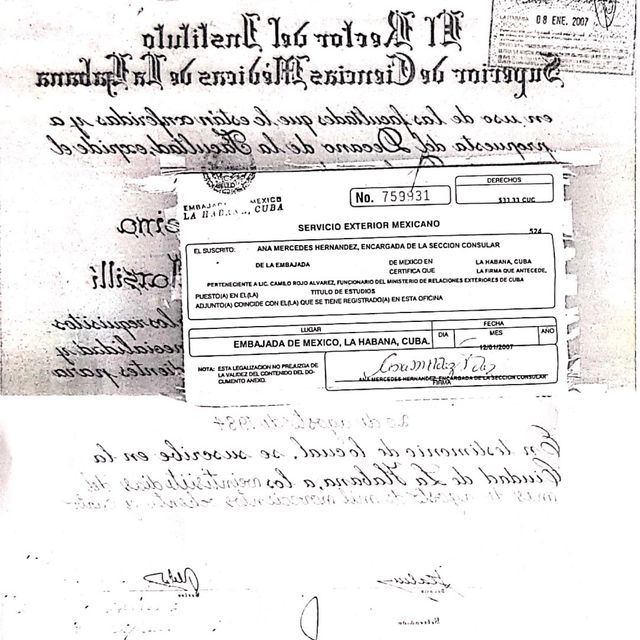 El Rector del Instituto
Superior de Ciencias Médicas de La Habana
LA HABANA 08 ENE. 2007
en uso de las facultades que le están conferidas y a
propuesta del Decano de la Facultad, expide el
EMBAJADA MEXICO
LA HABANA, CUBA
No. 759931
DERECHOS
$33.33 CUC
SERVICIO EXTERIOR MEXICANO
524
EL SUSCRITO: ANA MERCEDES HERNANDEZ, ENCARGADA DE LA SECCION CONSULAR
DE LA EMBAJADA DE MEXICO EN LA HABANA, CUBA
CERTIFICA QUE LA FIRMA QUE ANTECEDE,
PERTENECIENTE A LIC. CAMILO ROJO ALVAREZ, FUNCIONARIO DEL MINISTERIO DE RELACIONES EXTERIORES DE CUBA
PUESTO(A) EN EL(LA) TITULO DE ESTUDIOS
ADJUNTO(A) COINCIDE CON EL(LA) QUE SE TIENE REGISTRADO(A) EN ESTA OFICINA
LUGAR
FECHA
EMBAJADA DE MEXICO, LA HABANA, CUBA.
DIA MES AÑO
12/01/2007
NOTA: ESTA LEGALIZACION NO PREJUZGA DE
LA VALIDEZ DEL CONTENIDO DEL DO-
CUMENTO ANEXO.
ANA MERCEDES HERNANDEZ, ENCARGADA DE LA SECCION CONSULAR
FIRMA
los requisitos
para
de agosto de 1984
En testimonio de lo cual, se suscribe en la
Ciudad de La Habana, a los veintiséis días del
mes de agosto de mil novecientos ochenta y cuatro
Rector
Decano